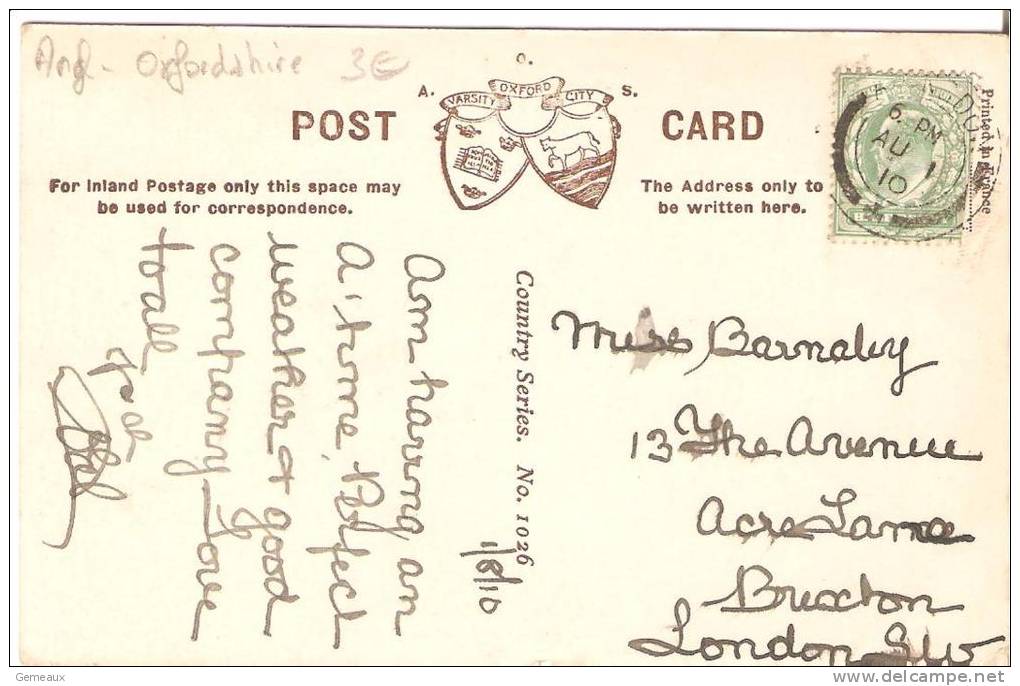 Ang - Oxfordshire 3€
O.
A. VARSITY OXFORD CITY S.
POST CARD
For Inland Postage only this space may
be used for correspondence.
The Address only to
be written here.
6. PM
AU 1
10
Printed in France
Country Series. No. 1026
1/8/10
Am having an
A.1 time, Perfect
weather & good
company Love
to all
Miss Barnaby
13 The Avenue
Acre Lane
Brixton
London SW
Gemeaux
www.delcampe.net